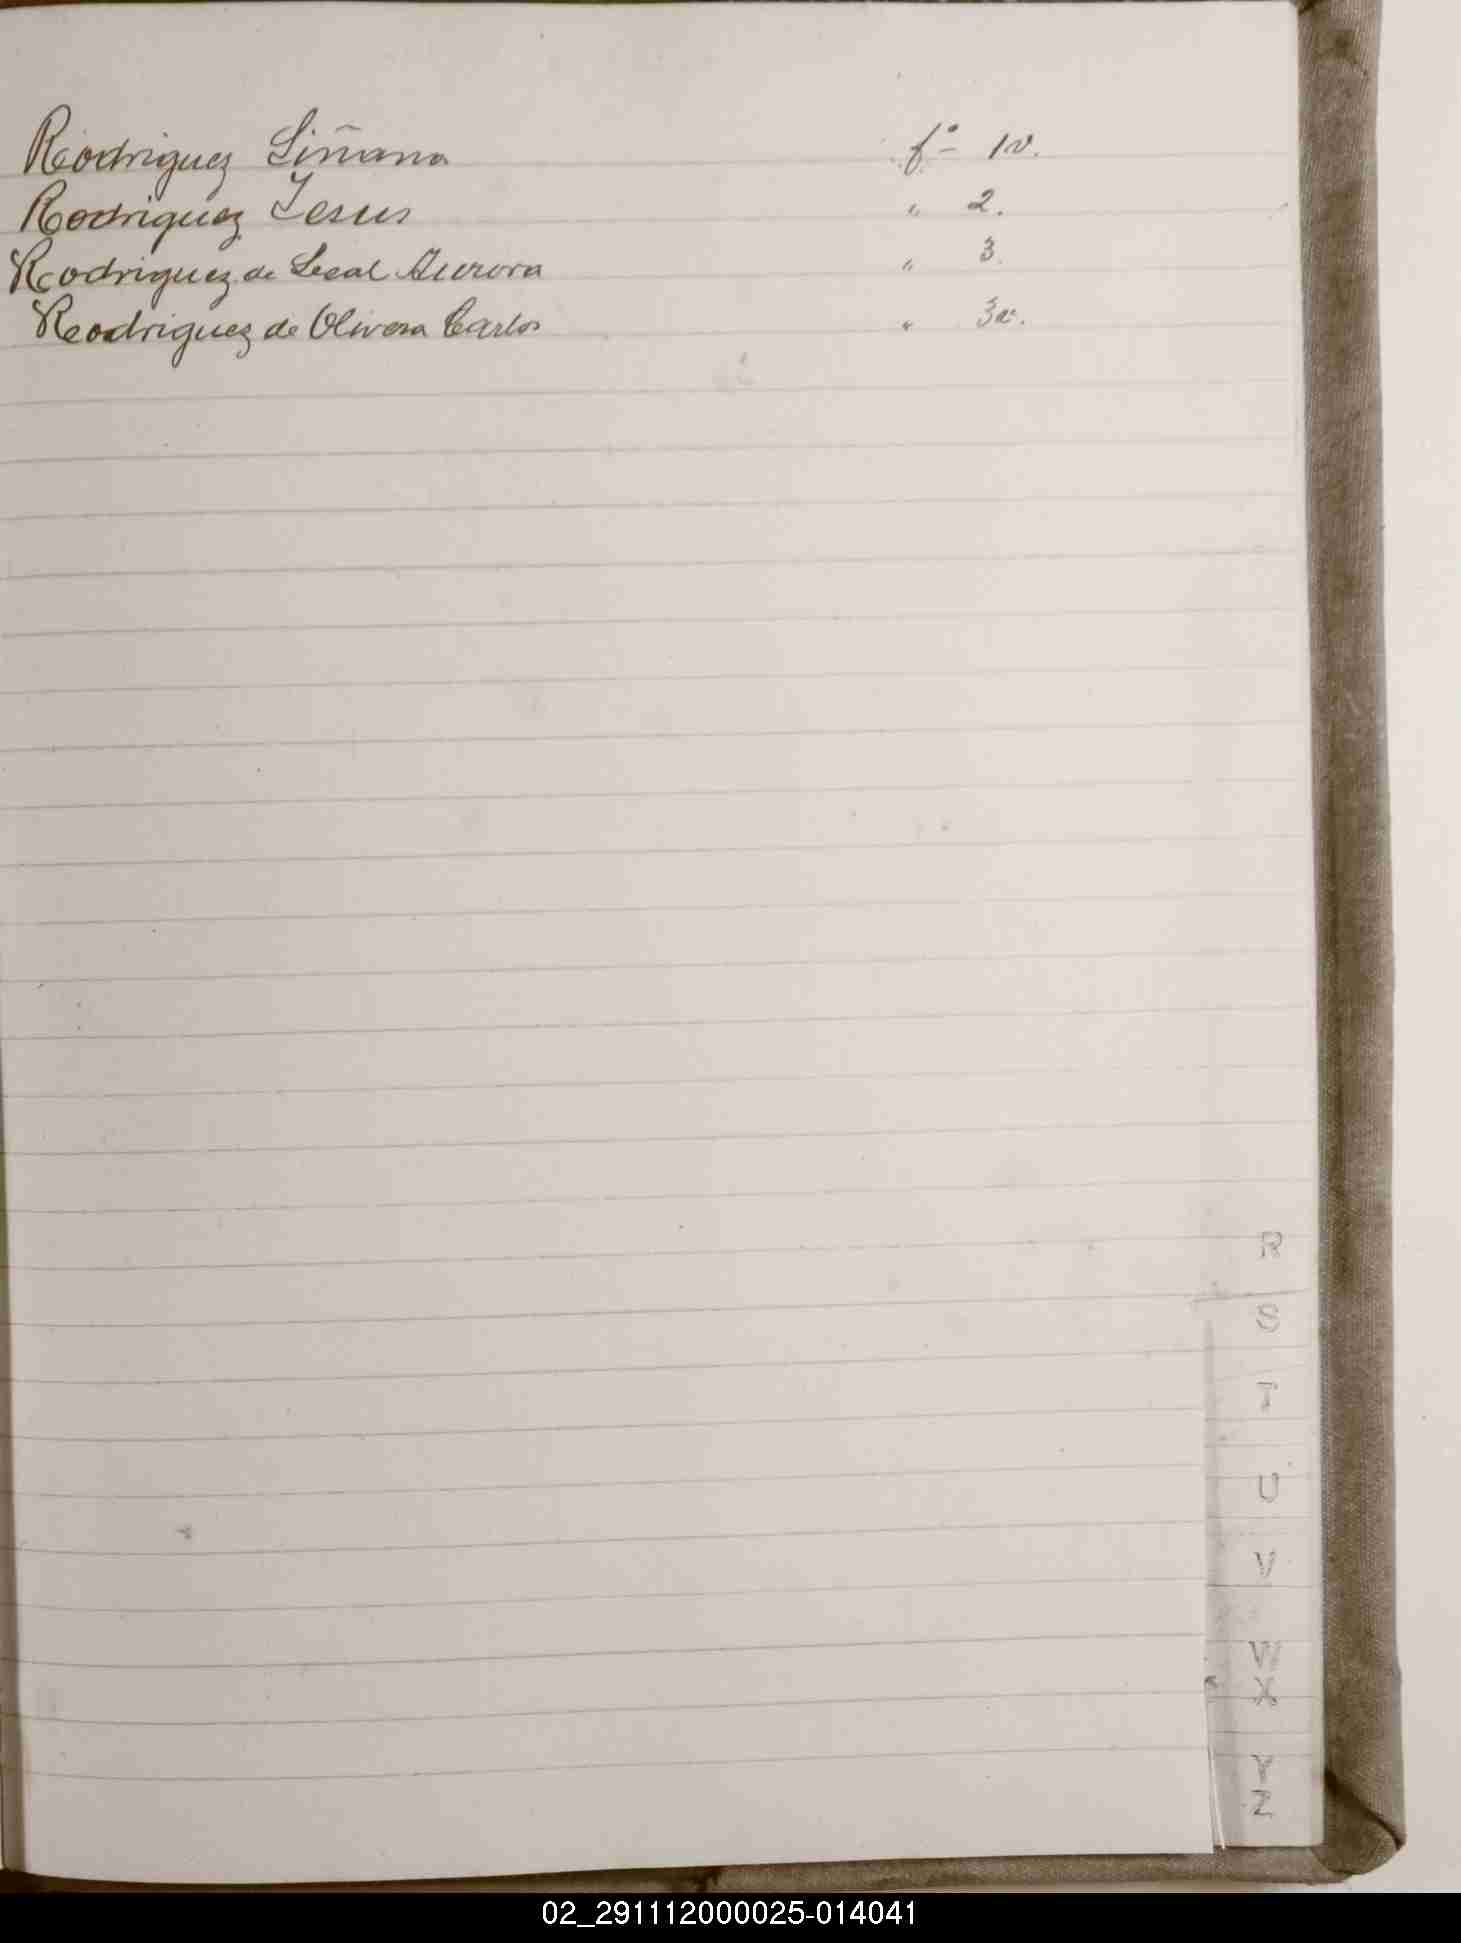 Rodriguez Liñana fº 1v.
Rodriguez Jesus " 2.
Rodriguez de Leeal Aurora " 3.
Rodriguez de Olivera Carlos " 3v.
R
S
T
U
V
W
X
Y
Z
02_291112000025-014041